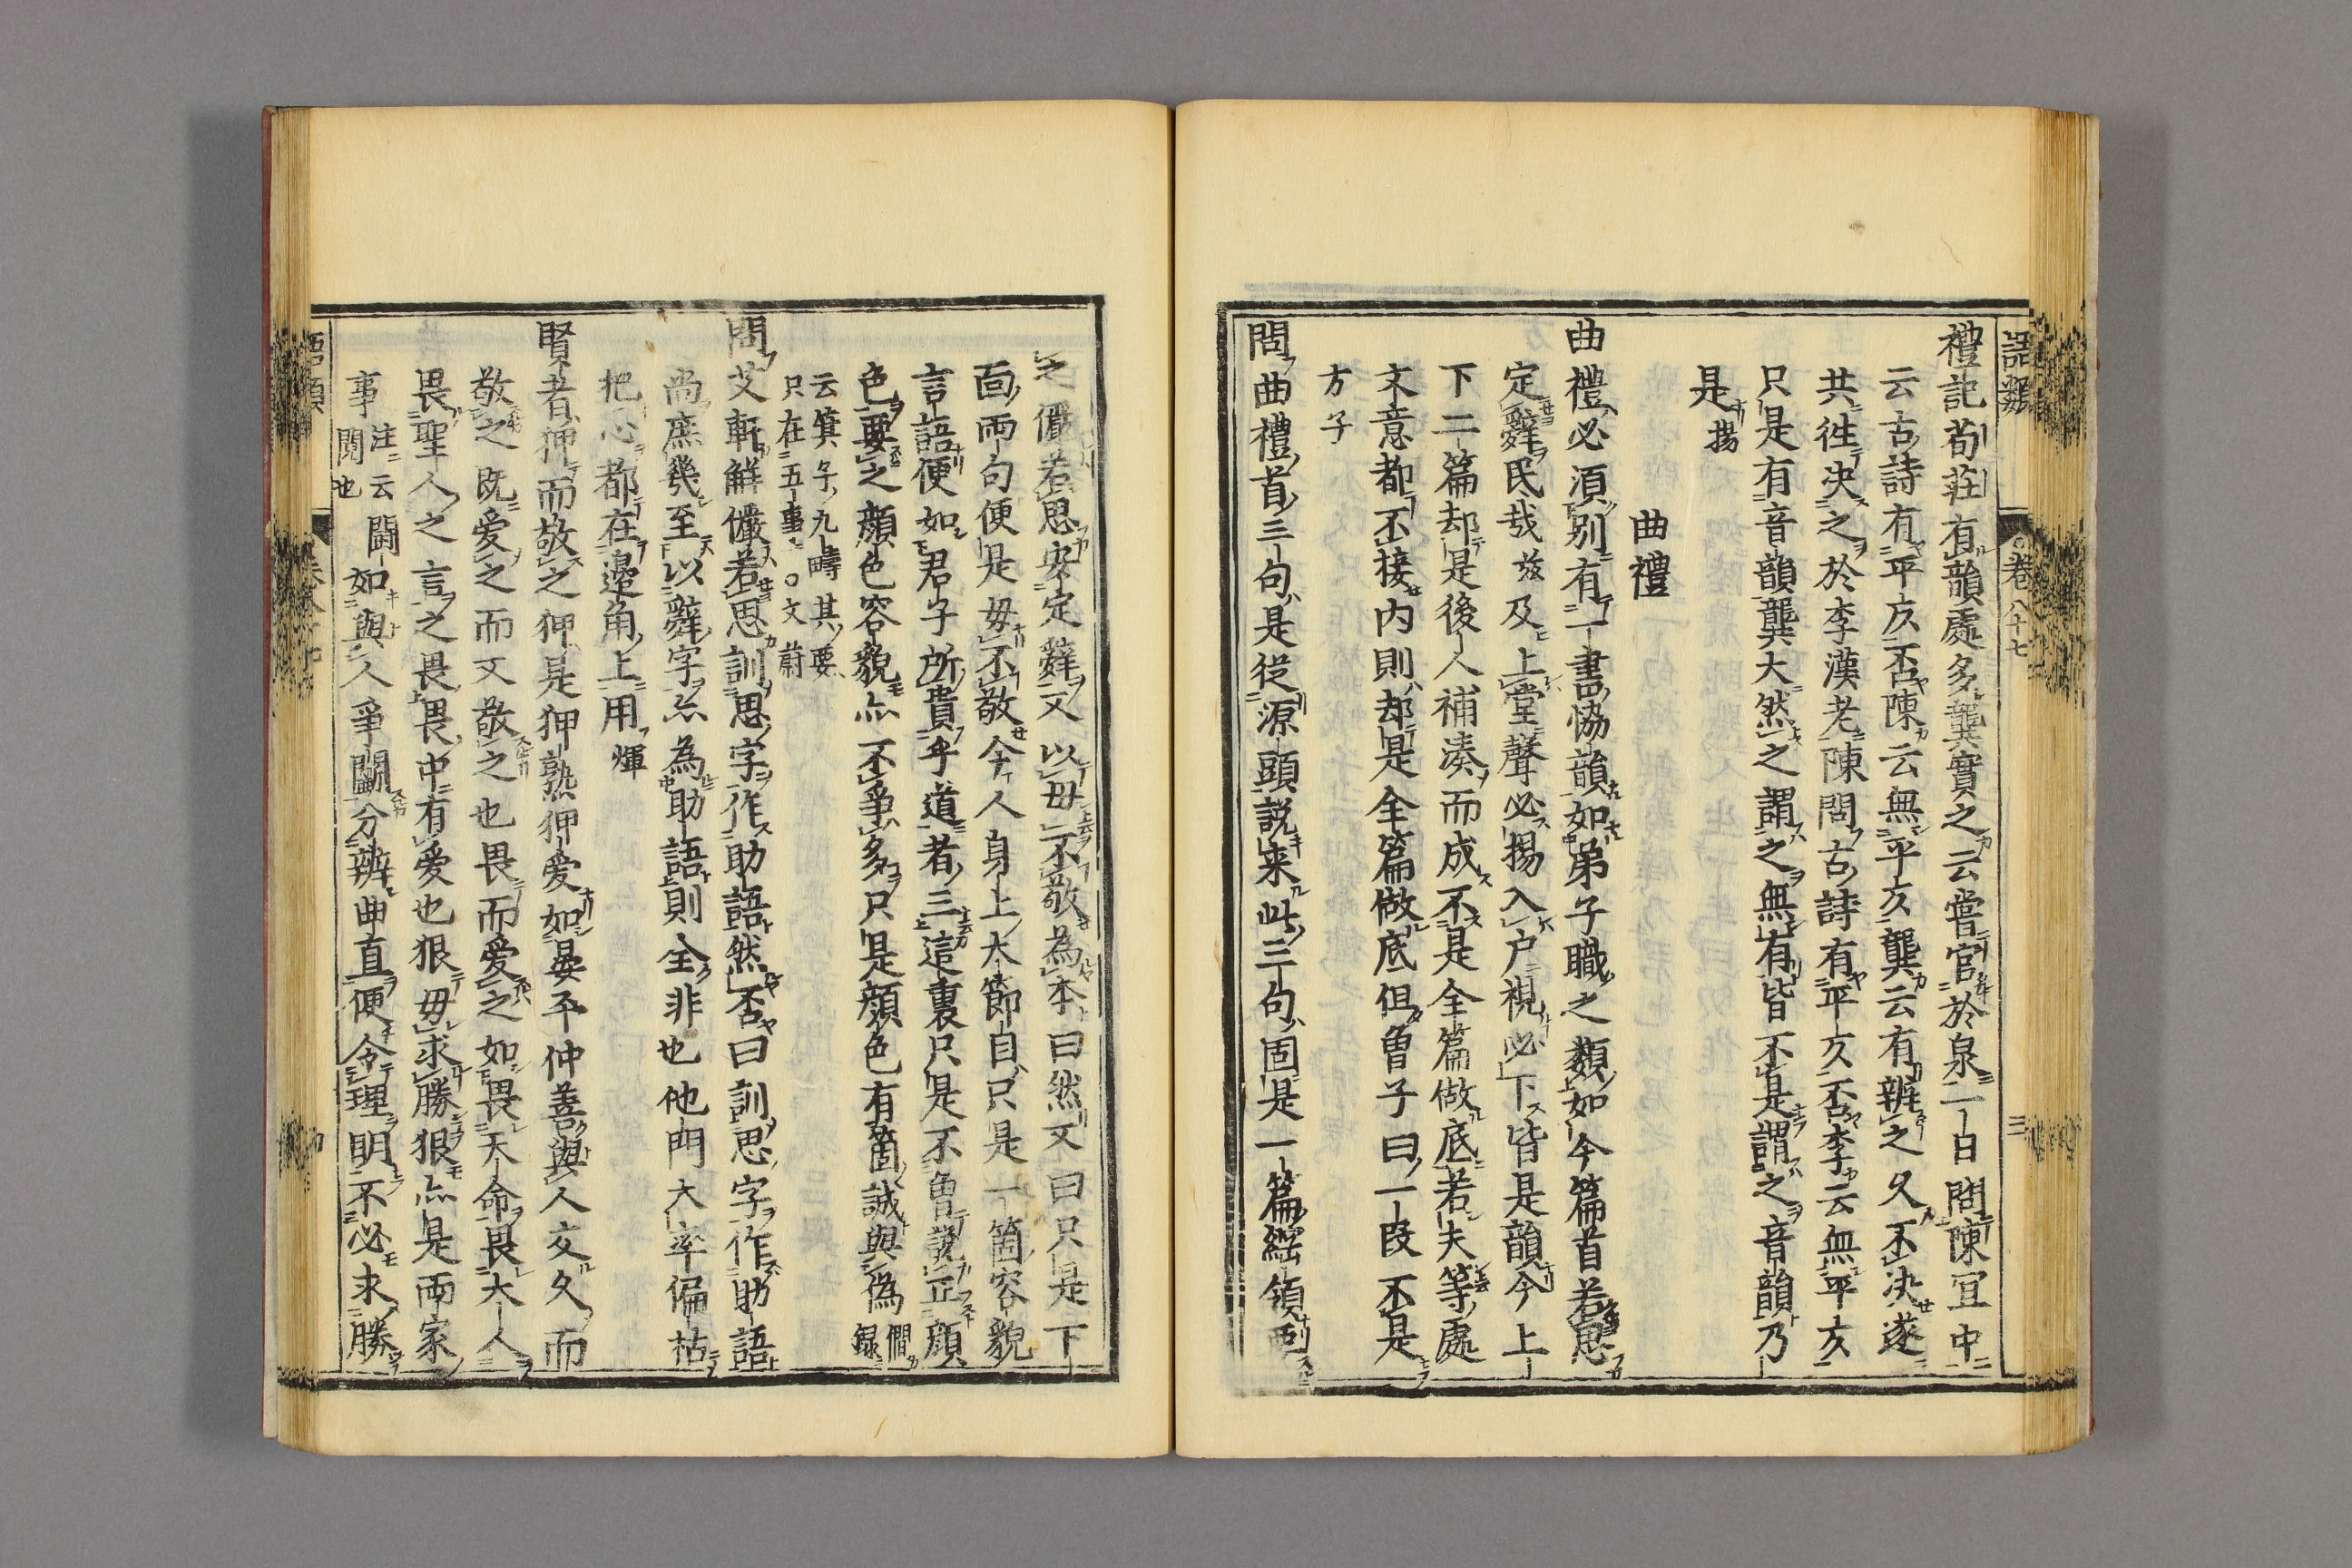 語類
卷八十七
三
禮記荀莊有韻處多龔實之云嘗官於泉一日問陳宜中
云古詩有平亥否陳云無平亥龔云有辨之久不决遂
共徃决之於李漢老陳問古詩有平亥否李云無平亥
只是有音韻龔大然之謂之無有皆不是謂之音韻乃
是揚
曲禮
曲禮必須別有一書協韻如弟子職之類如今篇首若思
定辭民哉茲及上堂聲必揚入户視必下皆是韻今上
下二篇却是後人補湊而成不是全篇做底若夫等處
文意都不接内則却是全篇做底但曽子曰一段不是
方子
問曲禮首三句是從源頭説来此三句固是一篇綱領要
之儼若思安定辭又以毋不敬為本曰然又曰只是下
面兩句便是毋不敬今人身上大節自只是一箇容貌
言語便如君子所貴乎道者三這裏只是不曽説正顔
色要之顔色容貌亦不爭多只是顔色有箇誠與偽 僩録
云箕子九疇其要
只在五事○文蔚
問艾軒解儼若思訓思字作助語然否曰訓思字作助語
尚庶幾至以辭字亦為助語則全非也他門大率偏枯
把心都在邉角上用煇
賢者狎而敬之狎是狎熟狎愛如晏平仲善與人交久而
敬之既愛之而又敬之也畏而愛之如畏天命畏大人
畏聖人之言之畏畏中有愛也狠毋求勝狠亦是兩家
事 注云
鬩也 鬩如與人爭鬭分辨曲直便令理明不必求勝
語類